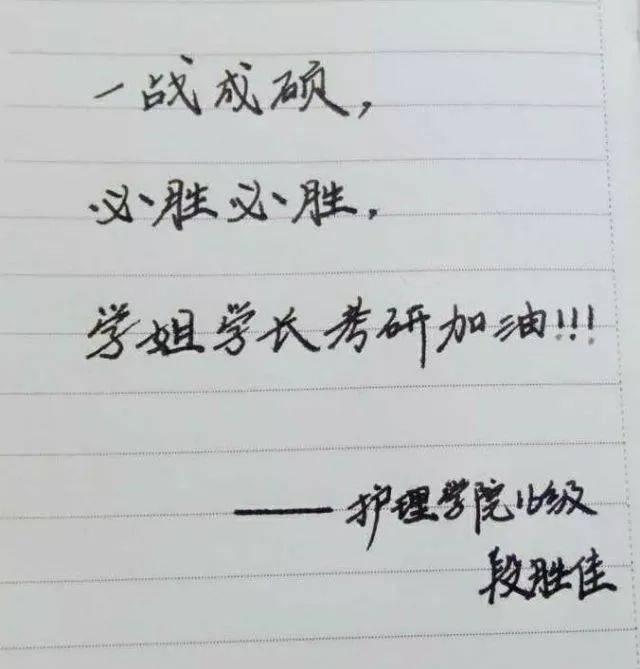 一战成硕,
必胜必胜.
学姐学长考研加油!!!
——护理学院16级
段胜佳